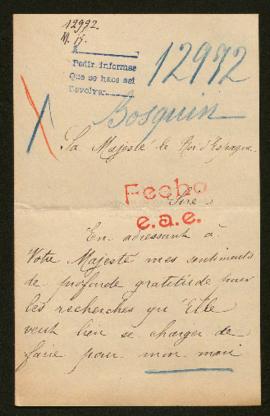 12992.
M. 15.
Pedir informes
Que se hace así
Devolver
12992
Bosquin
Sa Majesté le Roi d'Espagne.
Fecho
Sire,
e.a.e.
En adressant à
Votre Majesté mes sentiments
de profonde gratitude pour
les recherches qu'Elle
veut bien se charger de
faire pour mon mari